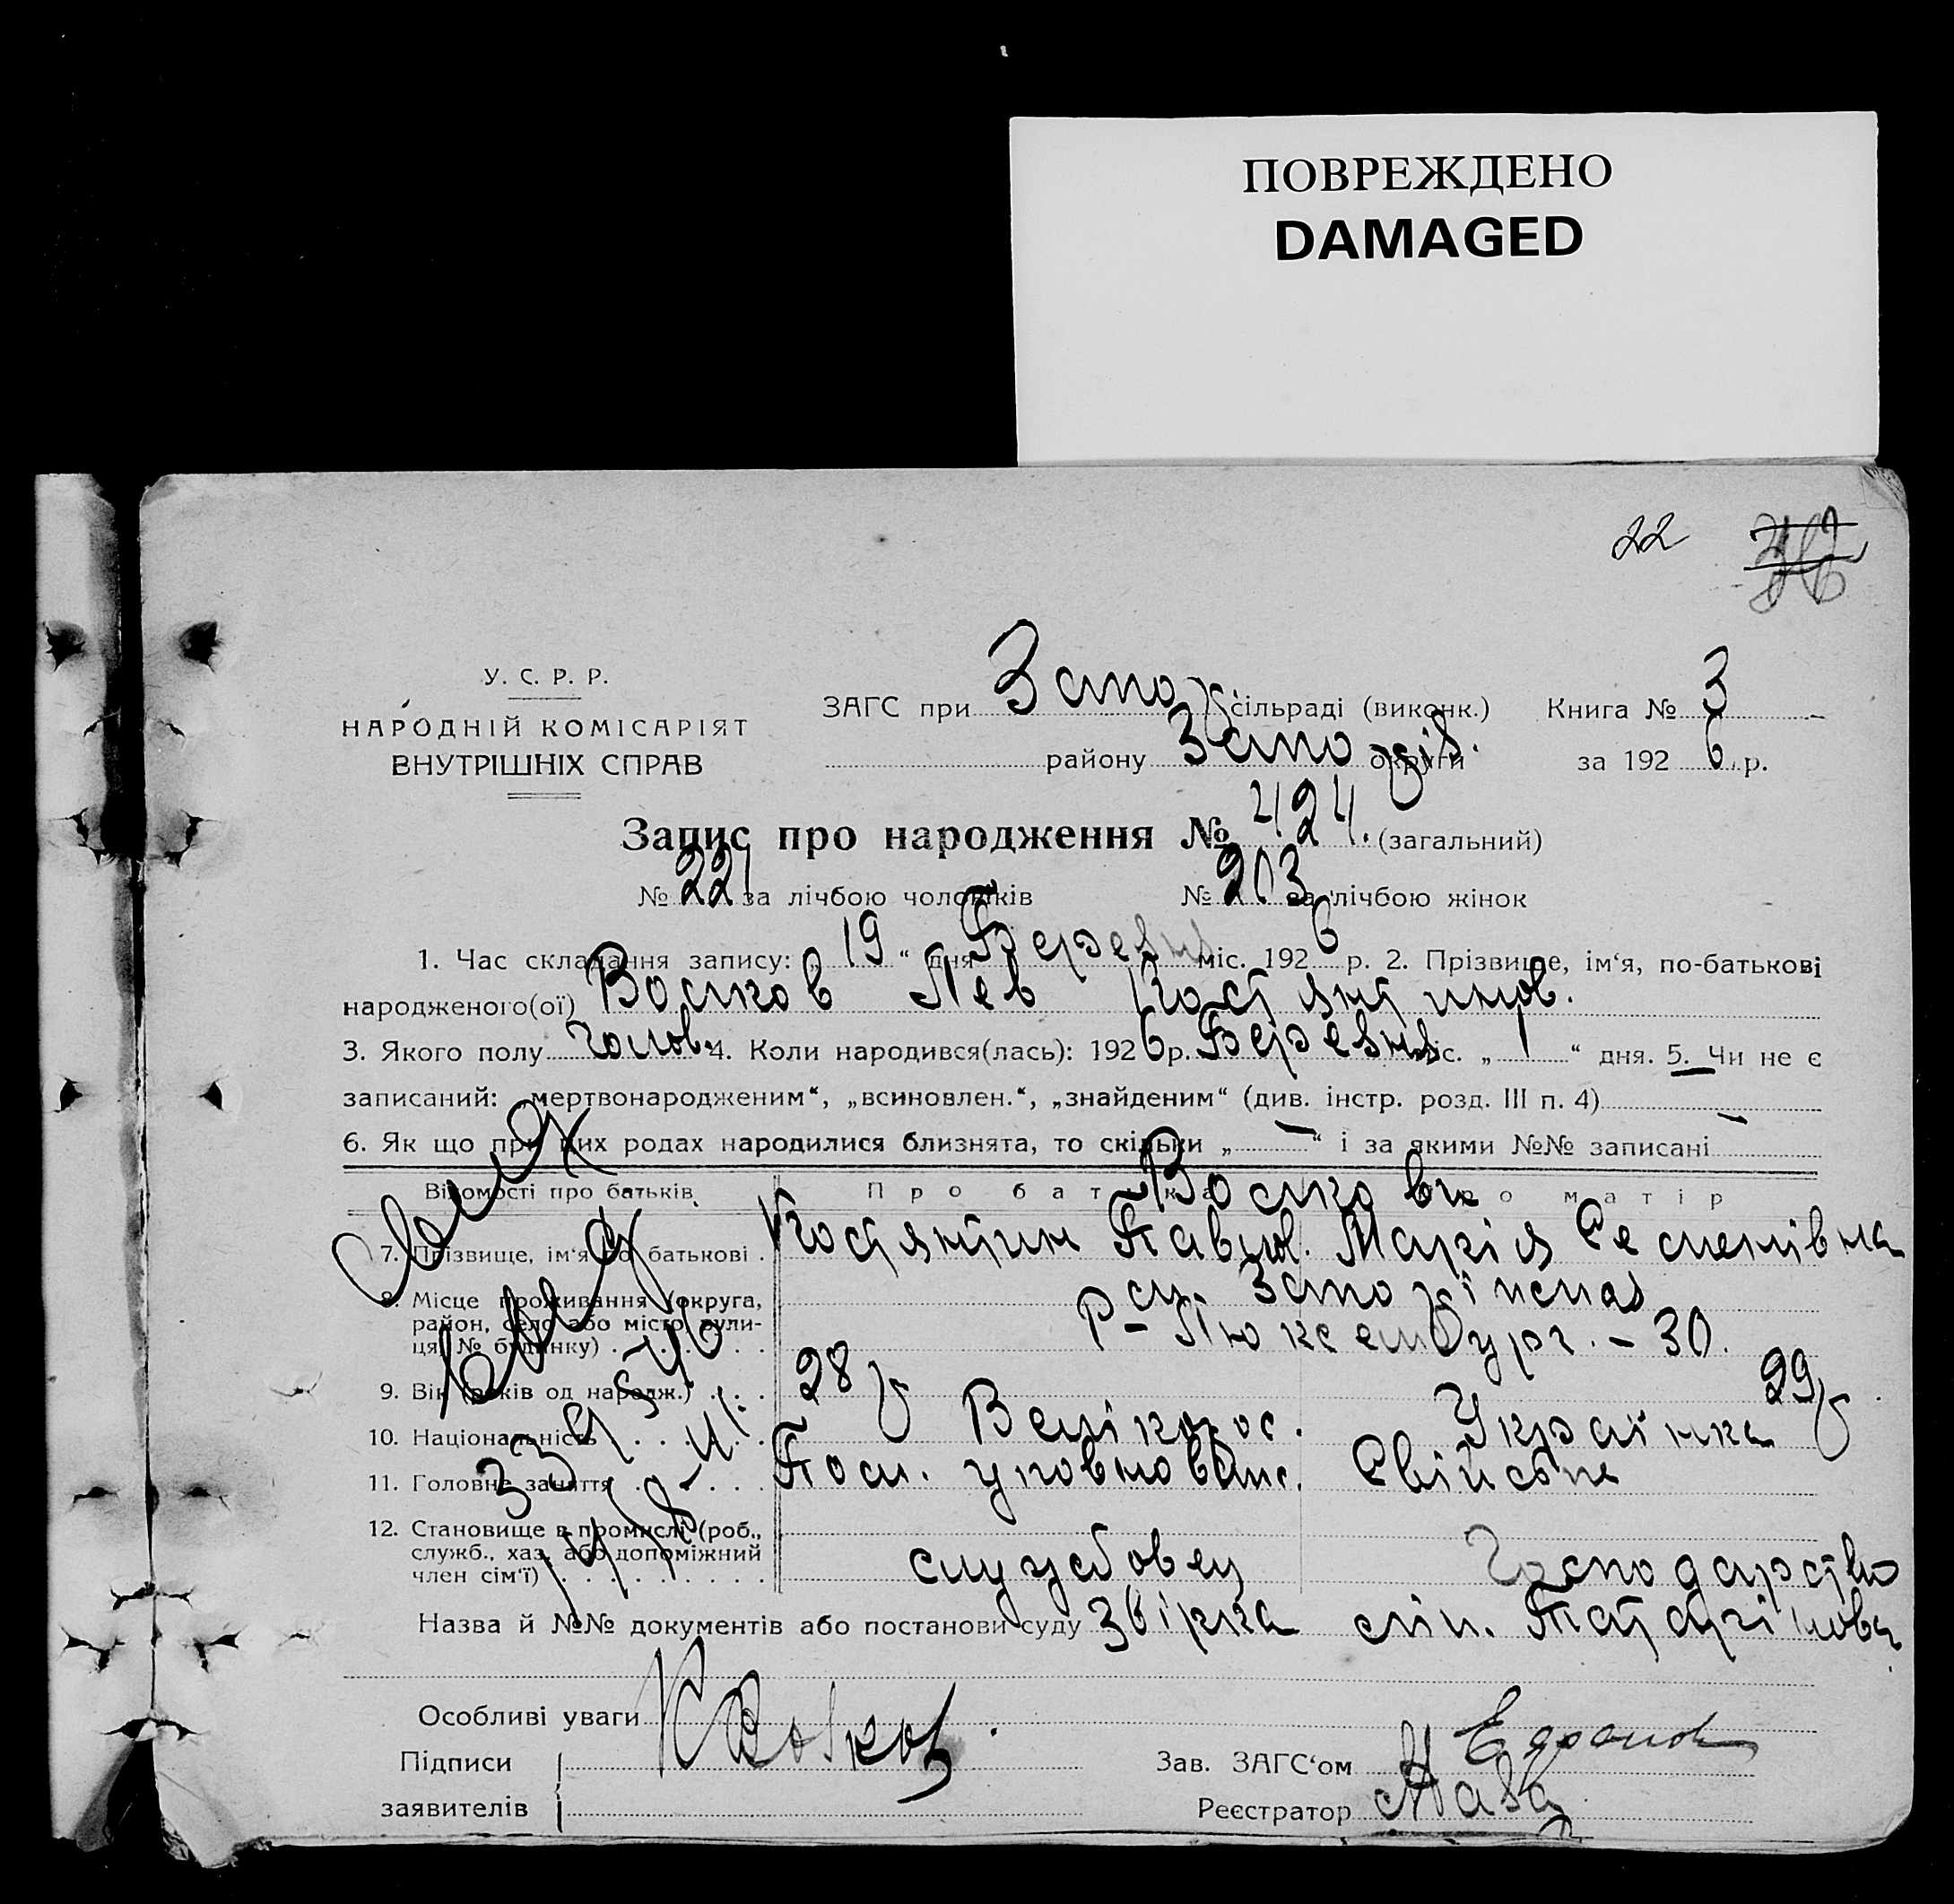 ПОВРЕЖДЕНО
DAMAGED
22
У. С. Р. Р.
НАРОДНІЙ КОМІСАРІЯТ
ВНУТРІШНІХ СПРАВ
ЗАГС при Запо сільраді (виконк.) Книга № 3
району Запоріз. округи за 1926 р.
Запис про народження № 424. (загальний)
№ 221 за лічбою чоловіків № 203 за лічбою жінок
1. Час складання запису: „ 19 “ дня Березня міс. 1926 р. 2. Прізвище, ім‘я, по-батькові
народженого(ої) Волков Лев Костянтинов.
3. Якого полу чолов. 4. Коли народився(лась): 1926 р. Березня міс. „ 1 “ дня. 5. Чи не є
записаний: „мертвонародженим“, „всиновлен.“, „знайденим“ (див. інстр. розд. III п. 4) —
6. Як що при цих родах народилися близнята, то скільки „ — “ і за якими №№ записані —
Відомості про батьків Про батька Про матір
Волкови
7. Прізвище, ім‘я по батькові . Костянтин Павлов. Марія Семенівна
8. Місце проживання (округа,
район, село або місто, вули-
ця, № будинку) . . . . . . . ст. Запоріжжя
Р-Люксембург. – 30.
9. Вік (років од народж.) . . . . 28 р 29 р
10. Національність . . . . . . Велікорос. Українка
11. Головне заняття . . . . . . Посл. уповноваж. Свійське
12. Становище в промислі (роб.,
служб., хаз. або допоміжний
член сім‘ї) . . . . . . . . . . службовец Господарство
Назва й №№ документів або постанови суду Звірка
Особливі уваги
Підписи
заявителів
КВолков
Зав. ЗАГС‘ом
Реєстратор